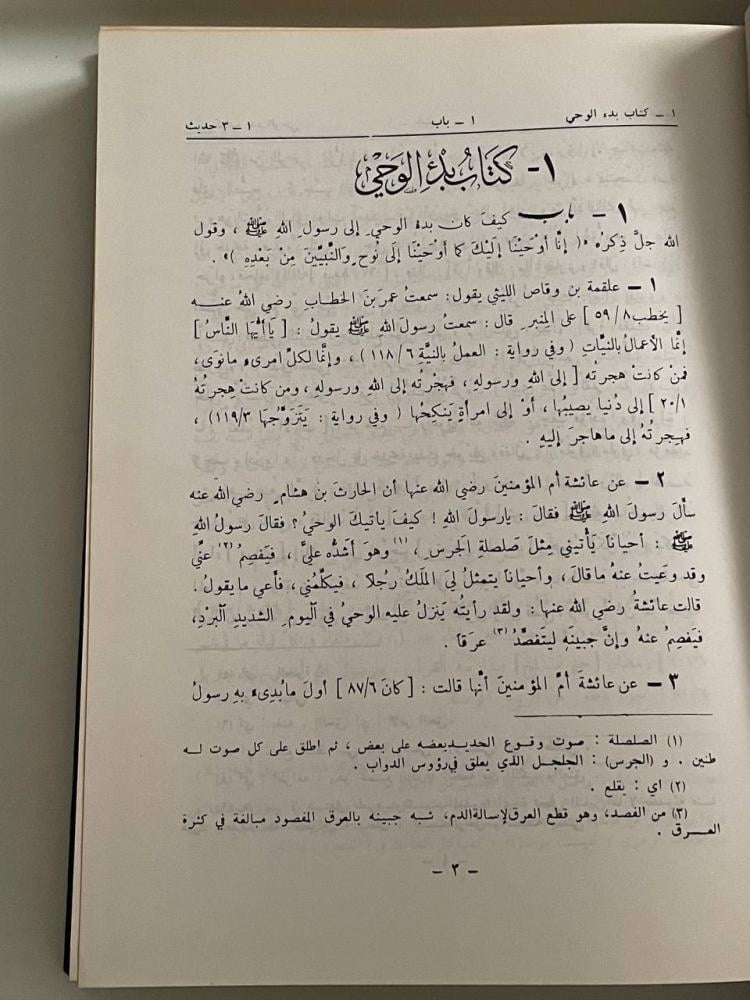 ١ - كتاب بدء الوحي ١ - باب ١ - ٣ حديث
١- كِتَابُ بدْءِ الوَحْيِ
١ - باب كيفَ كان بدءُ الوحيِ إلى رسولِ اللهِ ﷺ ، وقول
الله جلَّ ذِكرُه ﴿ إِنَّا أَوْحَيْنَا إِلَيْكَ كَمَا أَوْحَيْنَا إِلَى نُوحٍ وَالنَّبِيِّينَ مِنْ بَعْدِهِ ﴾ .
١ - علقمة بن وقاص الليثي يقول: سمعتُ عمرَ بنَ الخطابِ رضي اللهُ عنـــه
[ يخطب ٥٩/٨ ] على المِنبرِ قال: سمعتُ رسولَ اللهِ ﷺ يقولُ : [ يَاأَيُّهَا النَّاسُ ]
إنَّما الأعمالُ بالنيَّاتِ ( وفي رواية : العملُ بالنيَّةِ ١١٨/٦ ) ، وإنَّما لكلِّ امرىءٍ مانوَى،
فمنْ كانتْ هجرتُه [ إلى اللهِ ورسولهِ ، فهجْرتُه إلى اللهِ ورسولهِ ، ومن كانتْ هجرتُهُ
٢٠/١ ] إلى دُنيا يصيبُها ، أوْ إلى امرأةٍ يَنكِحُها ( وفي رواية : يَتَزَوَّجُها ١١٩/٣) ،
فهِجرتُهُ إلى ماهاجرَ إليهِ .
٢ - عن عائشة أم المؤمنينَ رضي الله عنها أن الحارثَ بن هشامٍ رضي الله عنه
سألَ رسولَ اللهِ ﷺ فقالَ : يارسولَ اللهِ ! كيفَ يأتيكَ الوحيُ ؟ فقالَ رسولُ اللهِ
ﷺ : أحياناً يَأْتيني مِثلَ صَلصلةِ الجَرسِ ، (١) وهوَ أشدُّه عليَّ ، فيَفصِمُ (٢) عنِّي
وقد وعَيتُ عنهُ ما قالَ ، وأحياناً يتمثلُ ليَ المَلَكُ رجُلاً ، فيكلِّمُني، فأعي ما يقولُ .
قالت عائشةُ رضي الله عنها : ولقد رأيتُه يَنزلُ عليهِ الوحيُ في اليومِ الشديدِ البرْدِ،
فيَفصِمُ عنهُ وإنَّ جبينَه ليَتفَصَّدُ (٣) عرَقاً .
٣ - عن عائشةَ أمِّ المؤمنينَ أنَّها قالت : [ كانَ ٨٧/٦ ] أولَ مابُدِىءَ بهِ رسولُ
(١) الصلصلة : صوت وقوع الحديدبعضه على بعض ، ثم اطلق على كل صوت لـه
طنين . و (الجرس) : الجلجل الذي يعلق في رؤوس الدواب .
(٢) اي : يقلع .
(٣) من الفصد، وهو قطع العرق لإسالة الدم، شبه جبينه بالعرق المفصود مبالغة في كثرة
العـــرق .
- ٣ -